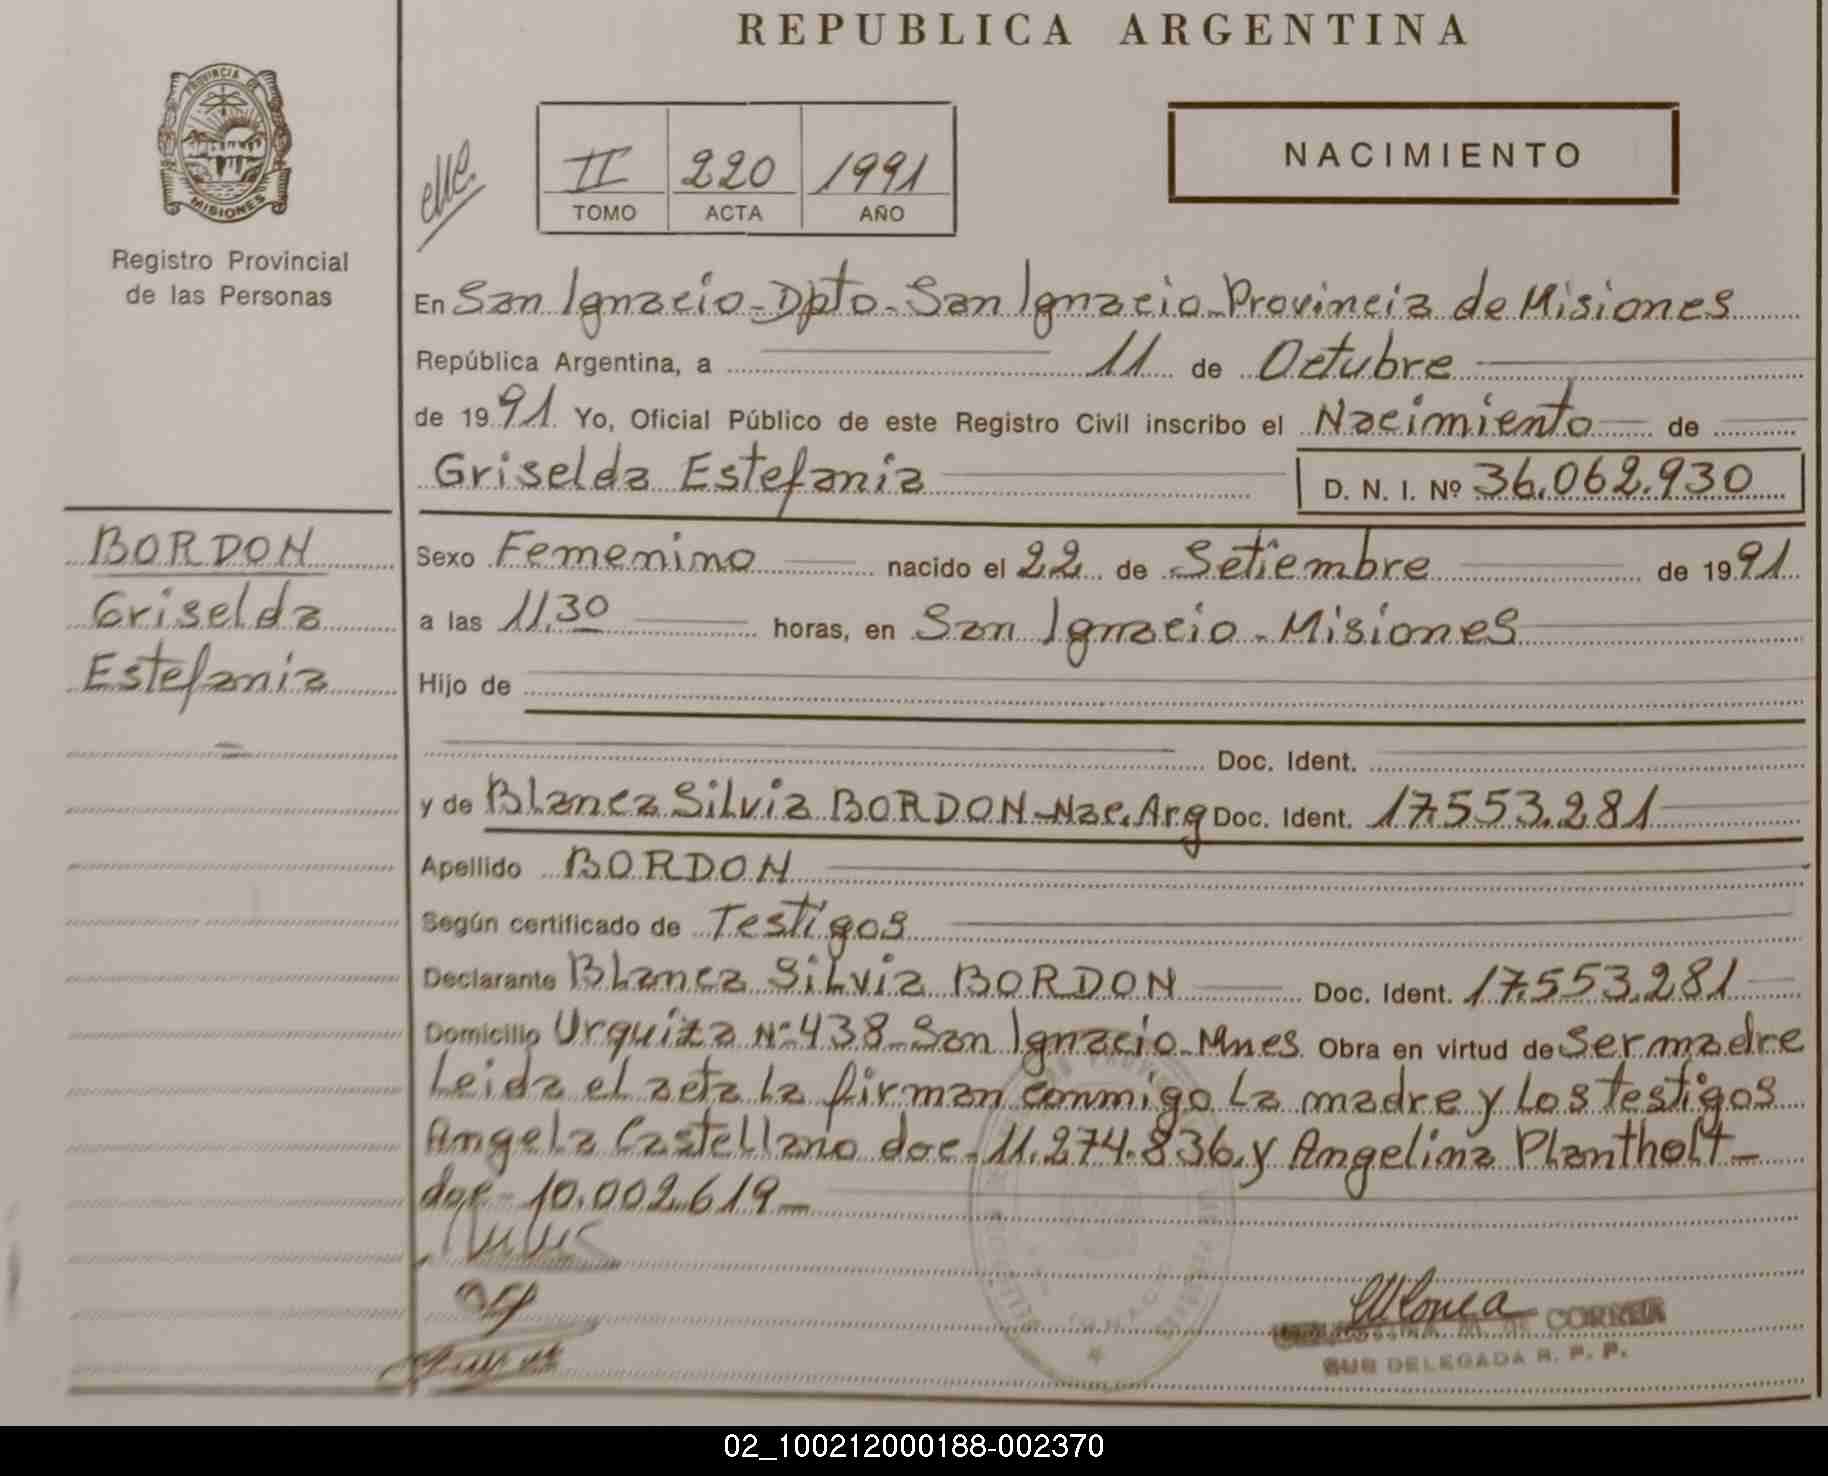 REPUBLICA ARGENTINA
PROVINCIA DE
MISIONES
Registro Provincial
de las Personas
II 220 1991
TOMO ACTA AÑO
NACIMIENTO
En San Ignacio - Dpto - San Ignacio - Provincia de Misiones
República Argentina, a 11 de Octubre
de 1991 Yo, Oficial Público de este Registro Civil inscribo el Nacimiento de
Griselda Estefania D. N. I. Nº 36.062.930
BORDON
Griselda
Estefania
Sexo Femenino nacido el 22 de Setiembre de 1991
a las 11,30 horas, en San Ignacio - Misiones
Hijo de
Doc. Ident.
y de Blanca Silvia BORDON - Nac. Arg Doc. Ident. 17.553.281
Apellido BORDON
Según certificado de Testigos
Declarante Blanca Silvia BORDON Doc. Ident. 17.553.281
Domicilio Urquiza Nº 438 - San Ignacio - Mnes Obra en virtud de Ser madre
Leida el acta la firman conmigo La madre y Los testigos
Angela Castellano doc - 11.274.836. y Angelina Plantholt -
doc - 10.002.619 -
M. DE CORREA
SUB DELEGADA R. P. P.
02_100212000188-002370